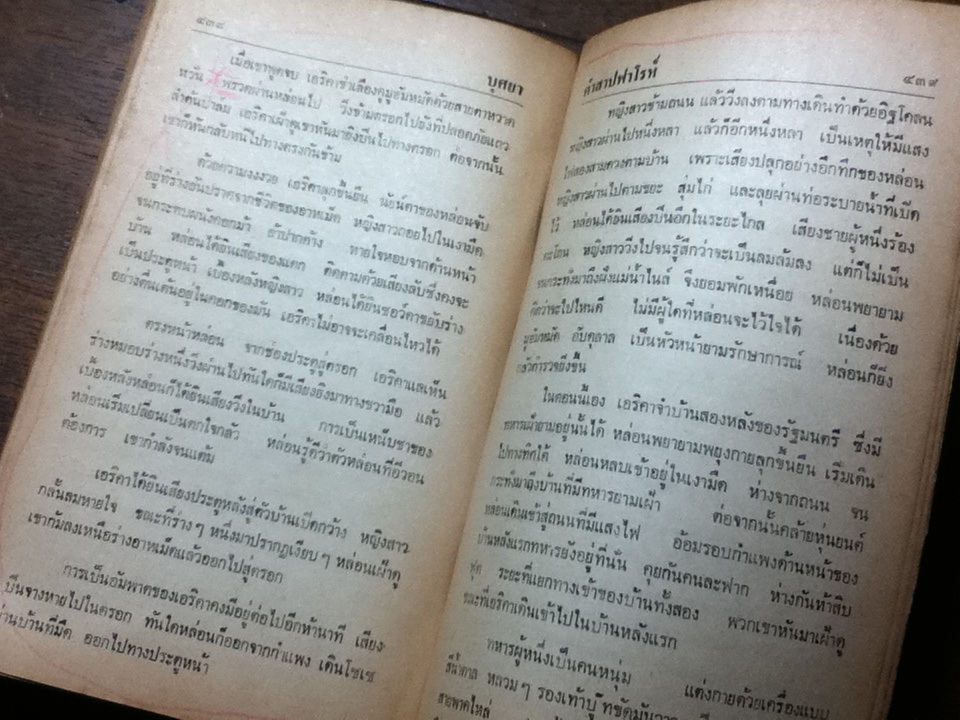 ๔๓๘
บุศยา
เมื่อเขาพูดจบ เอริคาชำเลืองดูมูฮัมหมัดด้วยสายตาหวาด
หวั่น พรวดผ่านหล่อนไป วิ่งข้ามตรอกไปยังที่ปลอดภัยแถว
ลำต้นปาล์ม เอริคาเฝ้าดูเขาหันมายิงปืนไปทางตรอก ต่อจากนั้น
เขาก็หันกลับหนีไปทางตรงกันข้าม
ด้วยความงงงวย เอริคาลุกขึ้นยืน นัยน์ตาของหล่อนจับ
อยู่ที่ร่างอันปราศจากชีวิตของอาหเม็ด หญิงสาวถอยไปในเงามืด
จนกระทบผนังคอกม้า อ้าปากค้าง หายใจหอบจากด้านหน้า
บ้าน หล่อนได้ยินเสียงของแตก ติดตามด้วยเสียงลับซึ่งคงจะ
เป็นประตูหน้า เบื้องหลังหญิงสาว หล่อนได้ยินซอว์ดาขยับร่าง
อย่างตื่นเต้นอยู่ในคอกของมัน เอริคาไม่อาจจะเคลื่อนไหวได้
ตรงหน้าหล่อน จากช่องประตูสู่ตรอก เอริคาแลเห็น
ร่างหมอบร่างหนึ่งวิ่งผ่านไปทันใดก็มีเสียงยิงมาทางขวามือ แล้ว
เบื้องหลังหล่อนก็ได้ยินเสียงวิ่งในบ้าน การเป็นเหน็บชาของ
หล่อนเริ่มเปลี่ยนเป็นตกใจกลัว หล่อนรู้ดีว่าตัวหล่อนที่อีวอน
ต้องการ เขากำลังจนแต้ม
เอริคาได้ยินเสียงประตูหลังสู่ตัวบ้านเปิดกว้าง หญิงสาว
กลั้นลมหายใจ ขณะที่ร่างๆ หนึ่งมาปรากฏเงียบๆ หล่อนเฝ้าดู
เขาก้มลงเหนือร่างอาหเม็ดแล้วออกไปสู่ตรอก
การเป็นอัมพาตของเอริคาคงมีอยู่ต่อไปอีกห้านาที เสียง
ปืนจางหายไปในตรอก ทันใดหล่อนก็ออกจากกำแพง เดินโซเซ
ผ่านบ้านที่มืด ออกไปทางประตูหน้า
คำสาปฟาโรห์
๔๓๙
หญิงสาวข้ามถนน แล้ววิ่งลงตามทางเดินทำด้วยอิฐโคลน
หญิงสาวผ่านไปหนึ่งหลา แล้วก็อีกหนึ่งหลา เป็นเหตุให้มีแสง
ไฟส่องสายดวงตามบ้าน เพราะเสียงปลุกอย่างอึกทึกของหล่อน
หญิงสาวผ่านไปตามขยะ สุ่มไก่ และลุยผ่านท่อระบายน้ำที่เปิด
ไว้ หล่อนได้ยินเสียงปืนอีกในระยะไกล เสียงชายผู้หนึ่งร้อง
ตะโกน หญิงสาววิ่งไปจนรู้สึกว่าจะเป็นลมล้มลง แต่ก็ไม่เป็น
จนกระทั่งมาถึงฝั่งแม่น้ำไนล์ จึงยอมพักเหนื่อย หล่อนพยายาม
คิดว่าจะไปไหนดี ไม่มีผู้ใดที่หล่อนจะไว้ใจได้ เนื่องด้วย
มูฮัมหมัด อับดุลาล เป็นหัวหน้ายามรักษาการณ์ หล่อนก็ยิ่ง
กลัวตำรวจยิ่งขึ้น
ในตอนนี้เอง เอริคาจำบ้านสองหลังของรัฐมนตรี ซึ่งมี
ทหารเฝ้ายามอยู่นั้นได้ หล่อนพยายามพยุงกายลุกขึ้นยืน เริ่มเดิน
ไปทางทิศใต้ หล่อนหลบเข้าอยู่ในเงามืด ห่างจากถนน จน
กระทั่งมาถึงบ้านที่มีทหารยามเฝ้า ต่อจากนั้นคล้ายหุ่นยนต์
หล่อนเดินเข้าสู่ถนนที่มีแสงไฟ อ้อมรอบกำแพงด้านหน้าของ
บ้านหลังแรกทหารยังอยู่ที่นั่น คุยกันคนละฟาก ห่างกันห้าสิบ
ฟุต ระยะที่แยกทางเข้าของบ้านทั้งสอง พวกเขาหันมาเฝ้าดู
ขณะที่เอริคาเดินเข้าไปในบ้านหลังแรก
ทหารผู้หนึ่งเป็นคนหนุ่ม แต่งกายด้วยเครื่องแบบ
สีน้ำตาล หลวมๆ รองเท้าบู๊ทขัดมัน
สายพาดไหล่